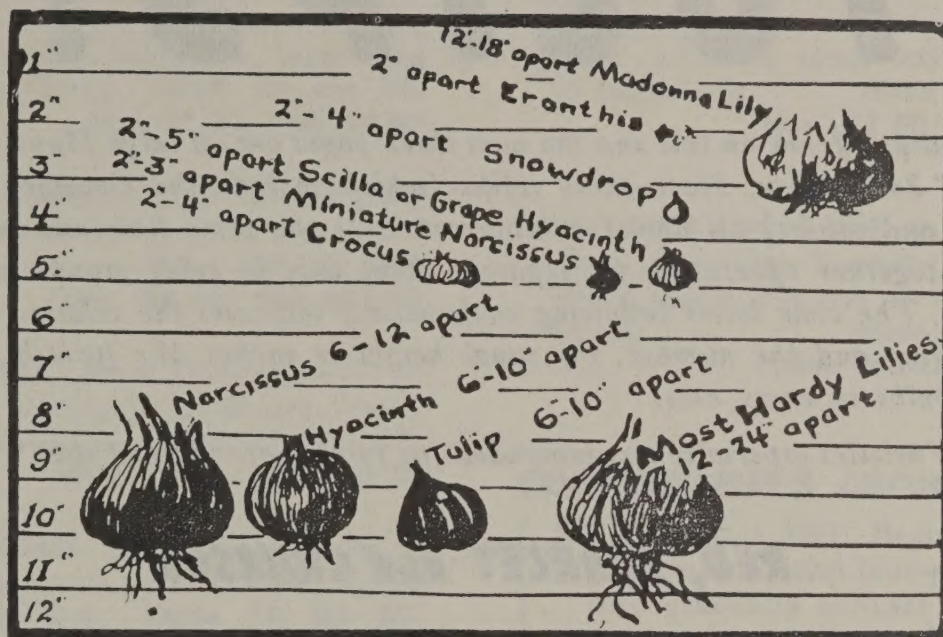 12"-18" apart Madonna Lily
1"
2" apart Eranthis
2"
2"-4" apart Snowdrop
2"-5" apart Scilla or Grape Hyacinth
3"
2"-3" apart Miniature Narcissus
4"
2"-4" apart Crocus
5"
6"
Narcissus 6-12 apart
7"
Hyacinth 6"-10" apart
8"
Tulip 6-10" apart
Most Hardy Lilies
12"-24" apart
9"
10"
11"
12"